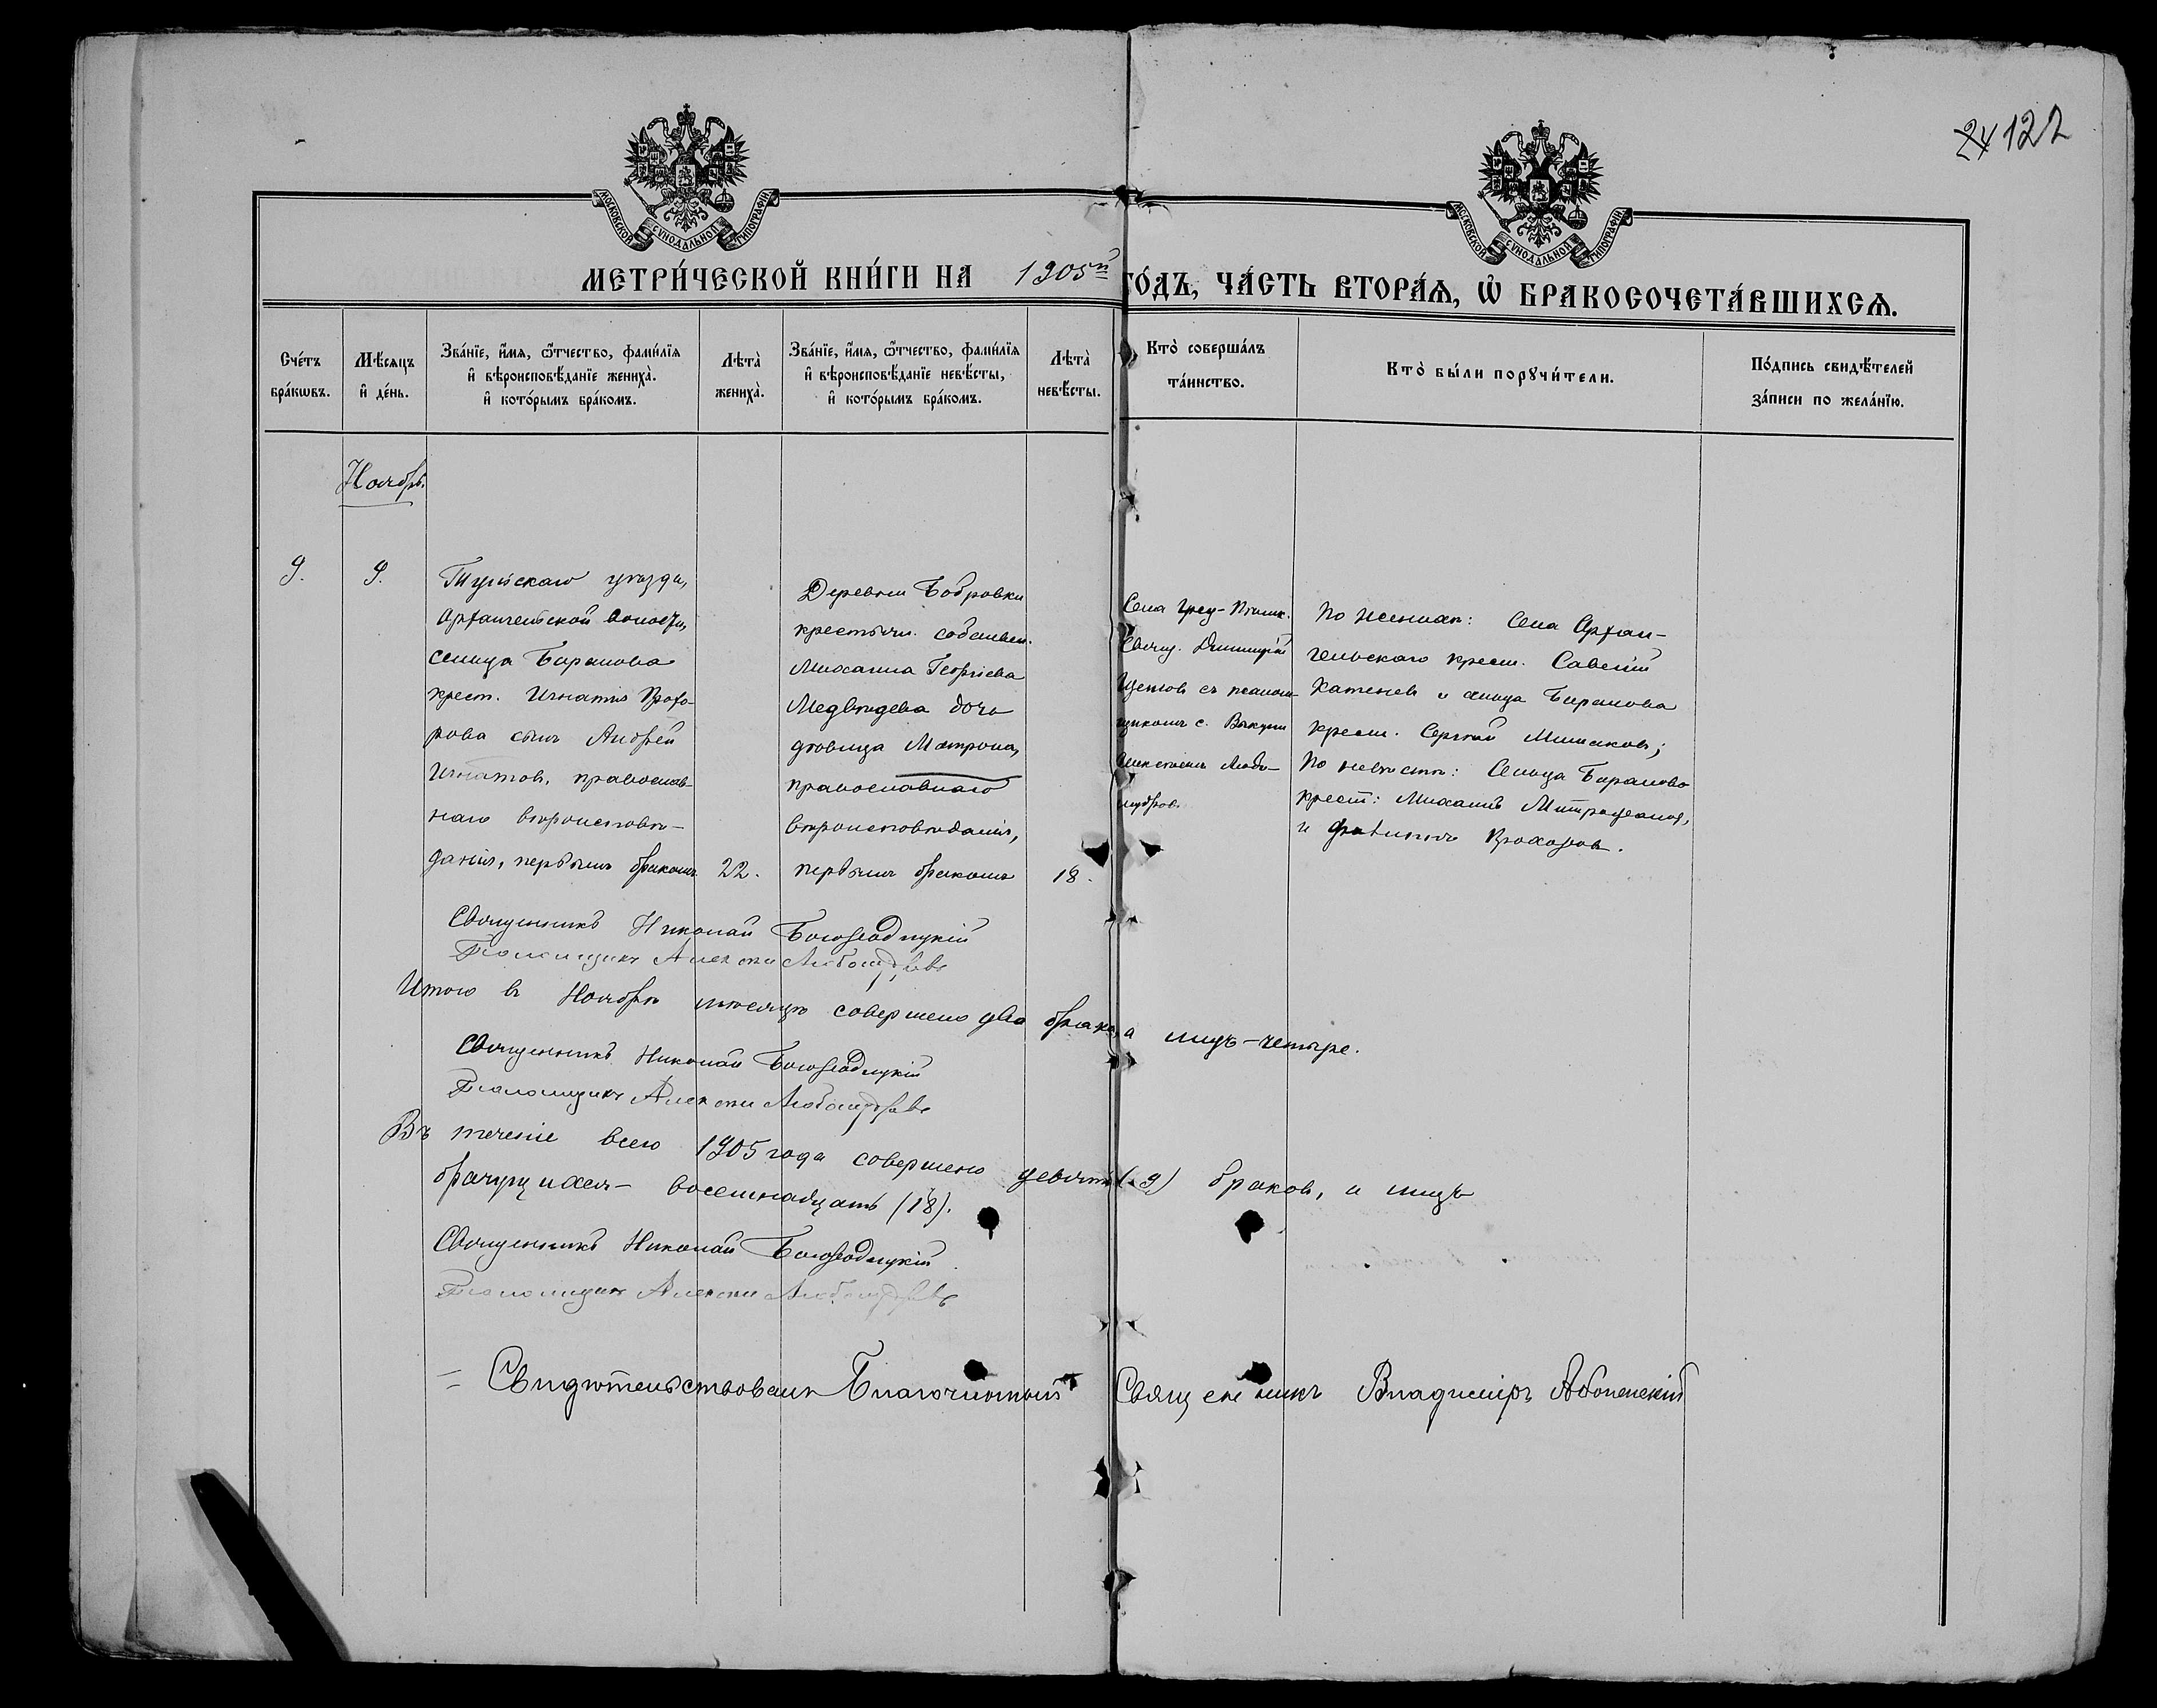 24 122
МОСКОВСКОЙ СѴНОДАЛЬНОЙ ТИПОГРАФІИ
МОСКОВСКОЙ СѴНОДАЛЬНОЙ ТИПОГРАФІИ
МЕТРИ́ЧЕСКОЙ КНИ́ГИ НА 1905й ГО́ДЪ, ЧА́СТЬ ВТОРА́Ѧ, Ѡ҆ БРАКОСОЧЕТА́ВШИХСѦ.
Сче́тъ
бра́кѡвъ.
Мѣ́сяцъ
и҆ де́нь.
Зва́нїе, и҆́мѧ, ѻ҆́тчество, фами́лїѧ
и҆ вѣроисповѣ́данїе жениха̀.
и҆ кото́рымъ бра́комъ.
Лѣта̀
жениха̀.
Зва́нїе, и҆́мѧ, ѻ҆́тчество, фами́лїѧ
и҆ вѣроисповѣ́данїе невѣ́сты,
и҆ кото́рымъ бра́комъ.
Лѣта̀
невѣ́сты.
Кто̀ соверша́лъ
та́инство.
Кто̀ бы́ли порꙋчи́тели.
По́дпись свидѣ́телей
за́писи по жела́нїю.
Ноябрь.
9.
9.
уѣзда,
Архангельской волости,
сельца Баранова
крест. Игнатія Прохо-
рова сынъ Андрей
Игнатов, православ-
наго вѣроисповѣ-
данія, первымъ бракомъ
22.
Деревни Бобровки
крестьян. собствен.
Михаила Георгіева
Медвѣдева дочь
дѣвица Матрона,
православнаго
вѣроисповѣданія,
первымъ бракомъ
18.
Села
Свящ. Димитрій
Щеглов съ псалом-
щиком с.
Любо-
мудров.
По женихѣ: Села Архан-
гельскаго крест. Савелій
и сельца Баранова
крест. Сергѣй
По невѣстѣ: Сельца Баранова
крест: Михаилъ Митрофанов,
и Прохоров.
Священникъ Николай Богородицкій
Псаломщикъ Алексѣй Любомудровъ
Итого въ Ноябрѣ мѣсяцѣ совершено два брака, а лицъ-четыре.
Священникъ Николай Богородицкій
Псаломщикъ Алексѣй Любомудровъ
Въ теченіе всего 1905 года совершено девять (9) браков, а лицъ
брачущихся- восемнадцать (18).
Священникъ Николай Богородицкій
Псаломщикъ Алексѣй Любомудровъ
= Свидѣтельствовалъ Благочинный Священникъ Владиміръ